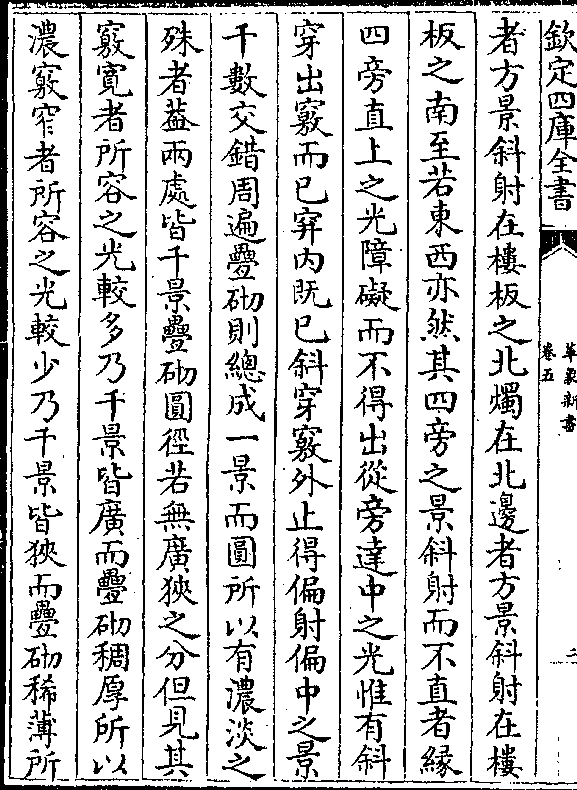 欽定四庫全書
革象新書
卷五
二
者方景斜射在樓板之北燭在北邊者方景斜射在樓
板之南至若東西亦然其四旁之景斜射而不直者縁
四旁直上之光障礙而不得出從旁達中之光惟有斜
穿出竅而已穽内既已斜穿竅外止得偏射偏中之景
千數交錯周遍疊砌則總成一景而圓所以有濃淡之
殊者葢兩處皆千景疊砌圓徑若無廣狹之分但見其
竅寛者所容之光較多乃千景皆廣而疊砌稠厚所以
濃竅窄者所容之光較少乃千景皆狹而疊砌稀薄所